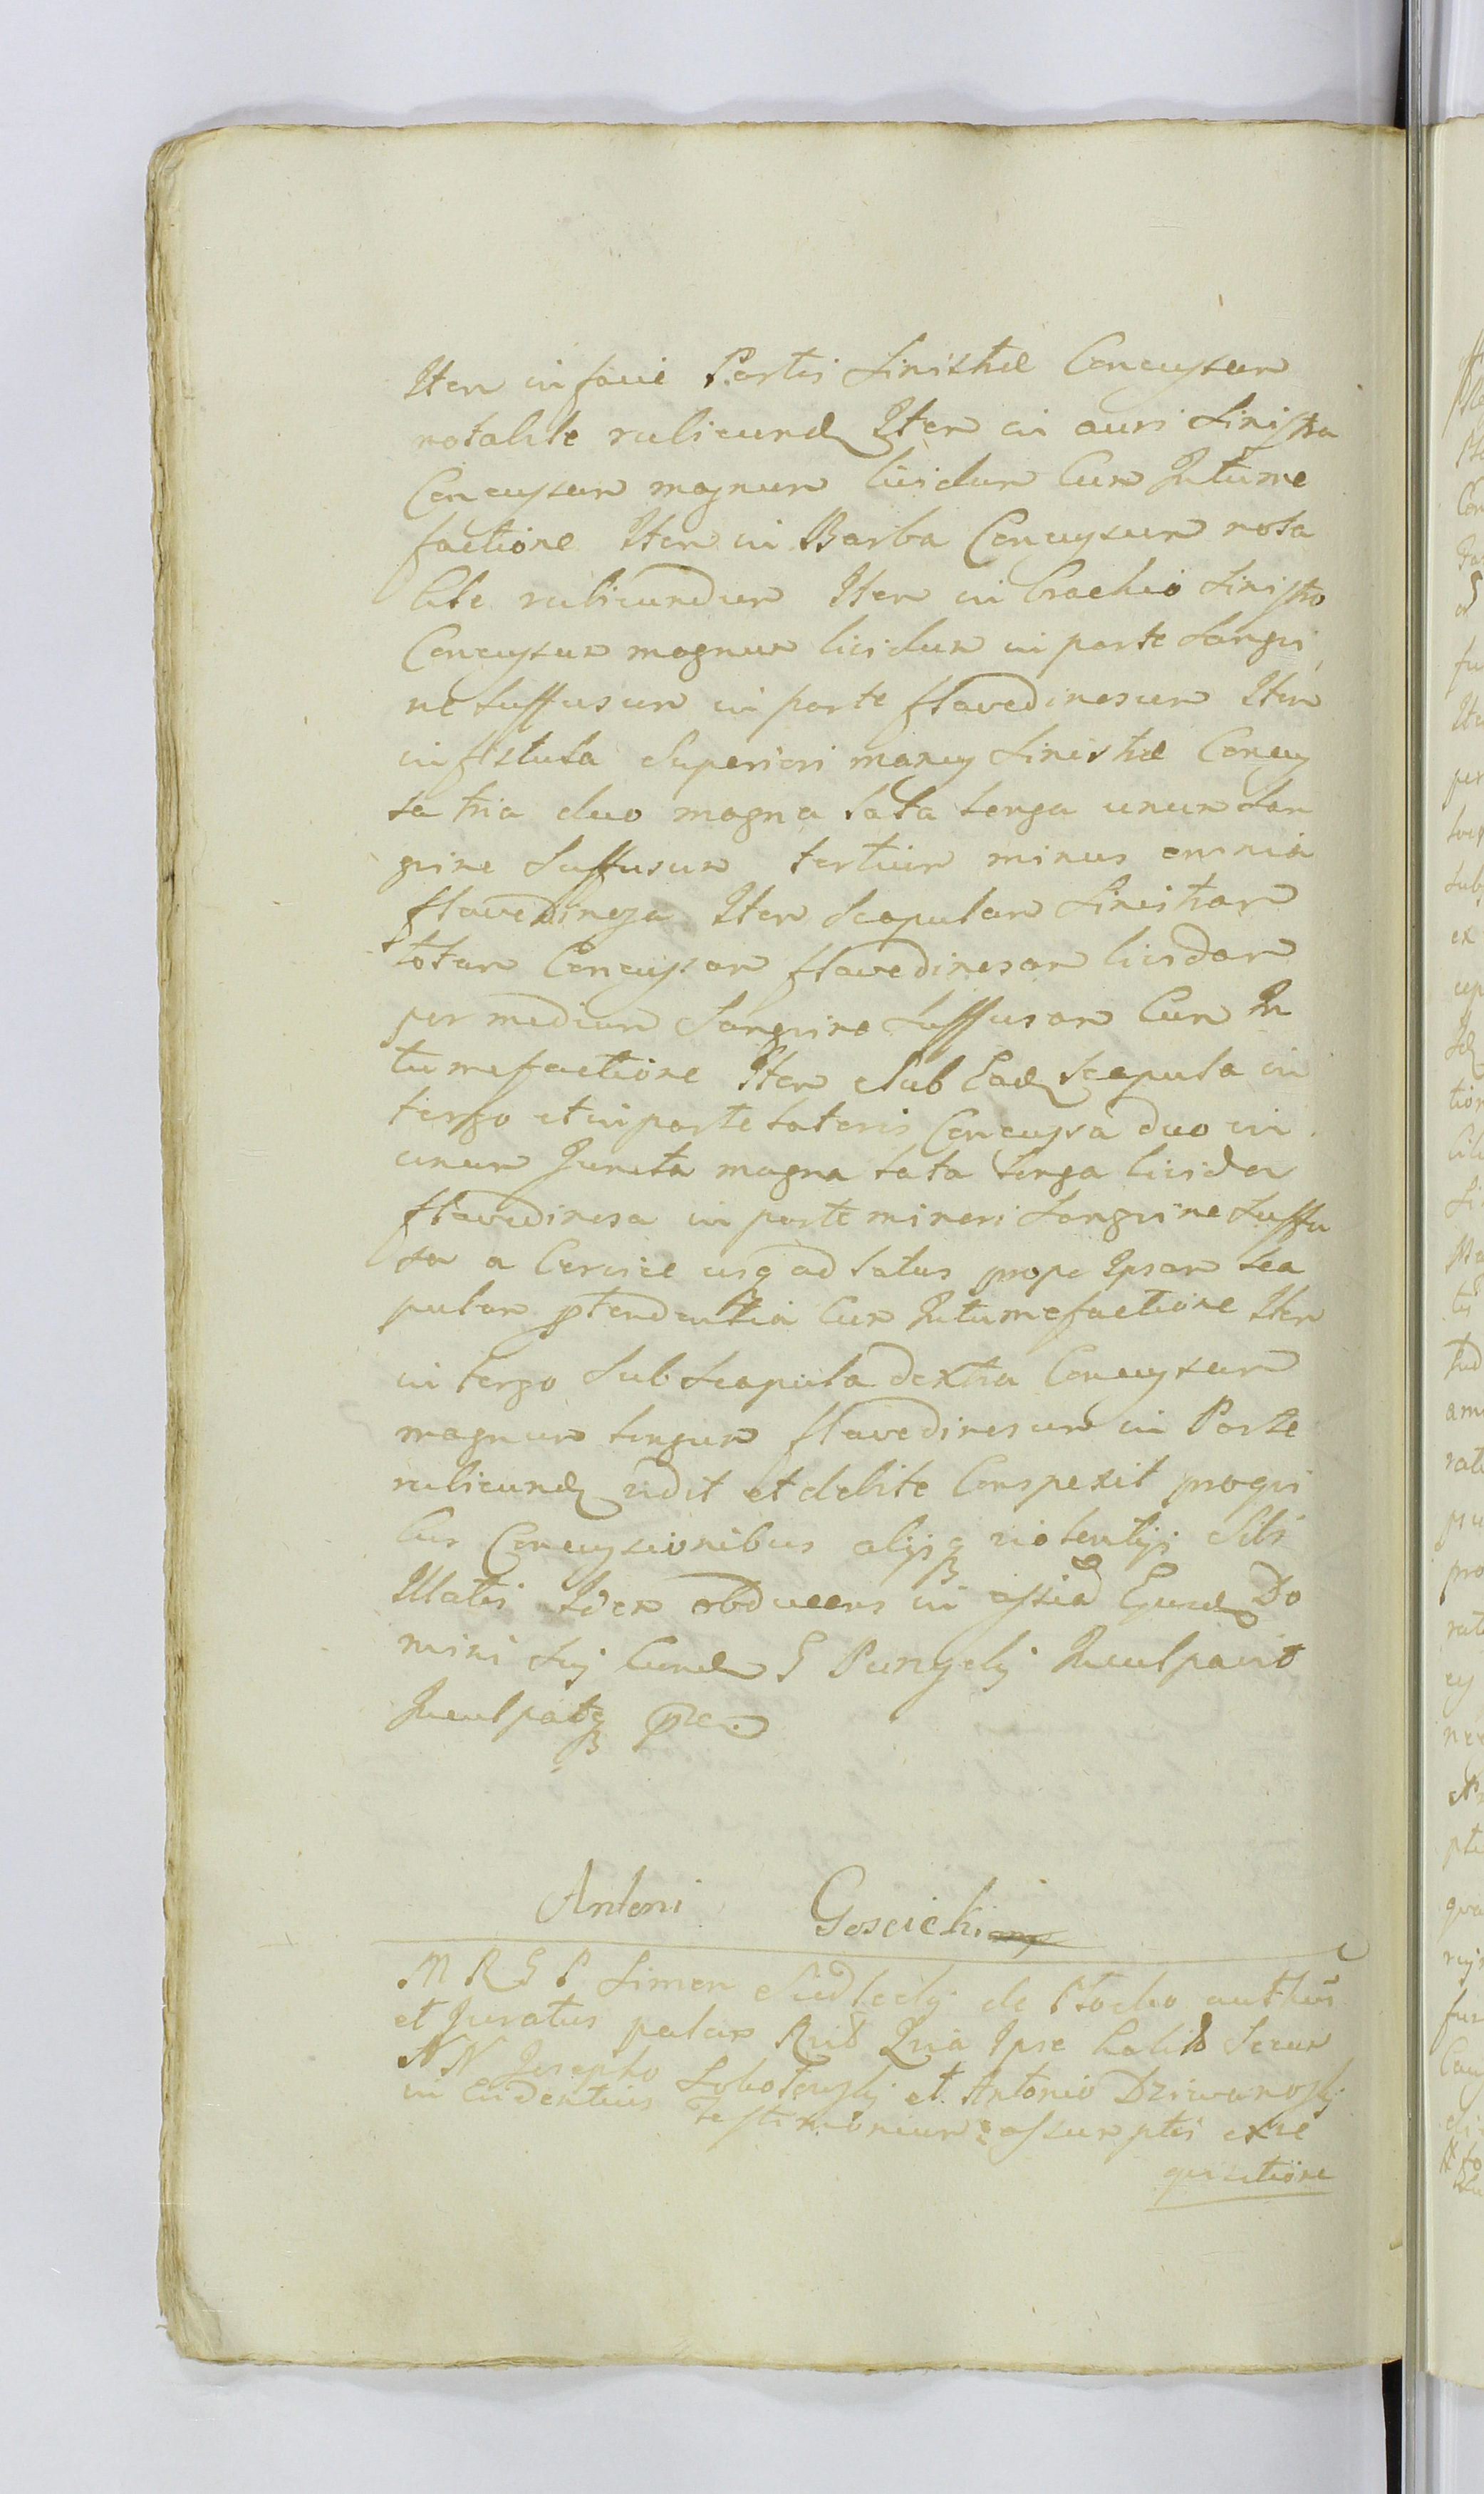 Item in facie Partis Sinistrae Concussum
notabile rubicund Item in auri Sinistra
Concussum magnum lividum Cum Intume
factione Item in Barba Concussum nota
bile rubicundum Item in brachio Sinistro
Concussum magnum lividum in parte Sangvi
ne Suffusum in parte flavedinosum Item
in fistula Superiori manus Sinistrae Concus
sa tria duo magna lata longa unum San
gvine Suffusum tertium minus omnia
flavedinosa Item Scapulam Sinistram
totam Concussam flavedinosam lividam
per medium Sangvine Suffusam Cum In
tumefactione Item Sub Ead Scapula in
tergo et in parte lateris Concussa duo in
unum Juncta magna lata longa livida
flavedinosa in parte minori Sangvine Suffu
sa a Cervice usq ad latus prope Ipsam Sca
pulam ptendentia Cum Intumefactione Item
in tergo Sub Scapula dextra Concussum
magnum longum flavedinosum in Parte
rubicund vidit et debite Conspexit pro qvi
bus Concussionibus alijsq violentijs Sibi
Illatis Idem obducens in assia Ejusd Do
mini Suj Eund G Pungelj Inculpavit
Inculpatq pn

Antoni Goscicki mp

M R G P Simon Siedlecki de Płocko auth
et Juratus palam Rnd Qvia Ipse habito Secum
NN Josepho Sobolewskj et Antonio Dziwanoskj
in Evidentius Testimonium assumptis ex re
qvisitione